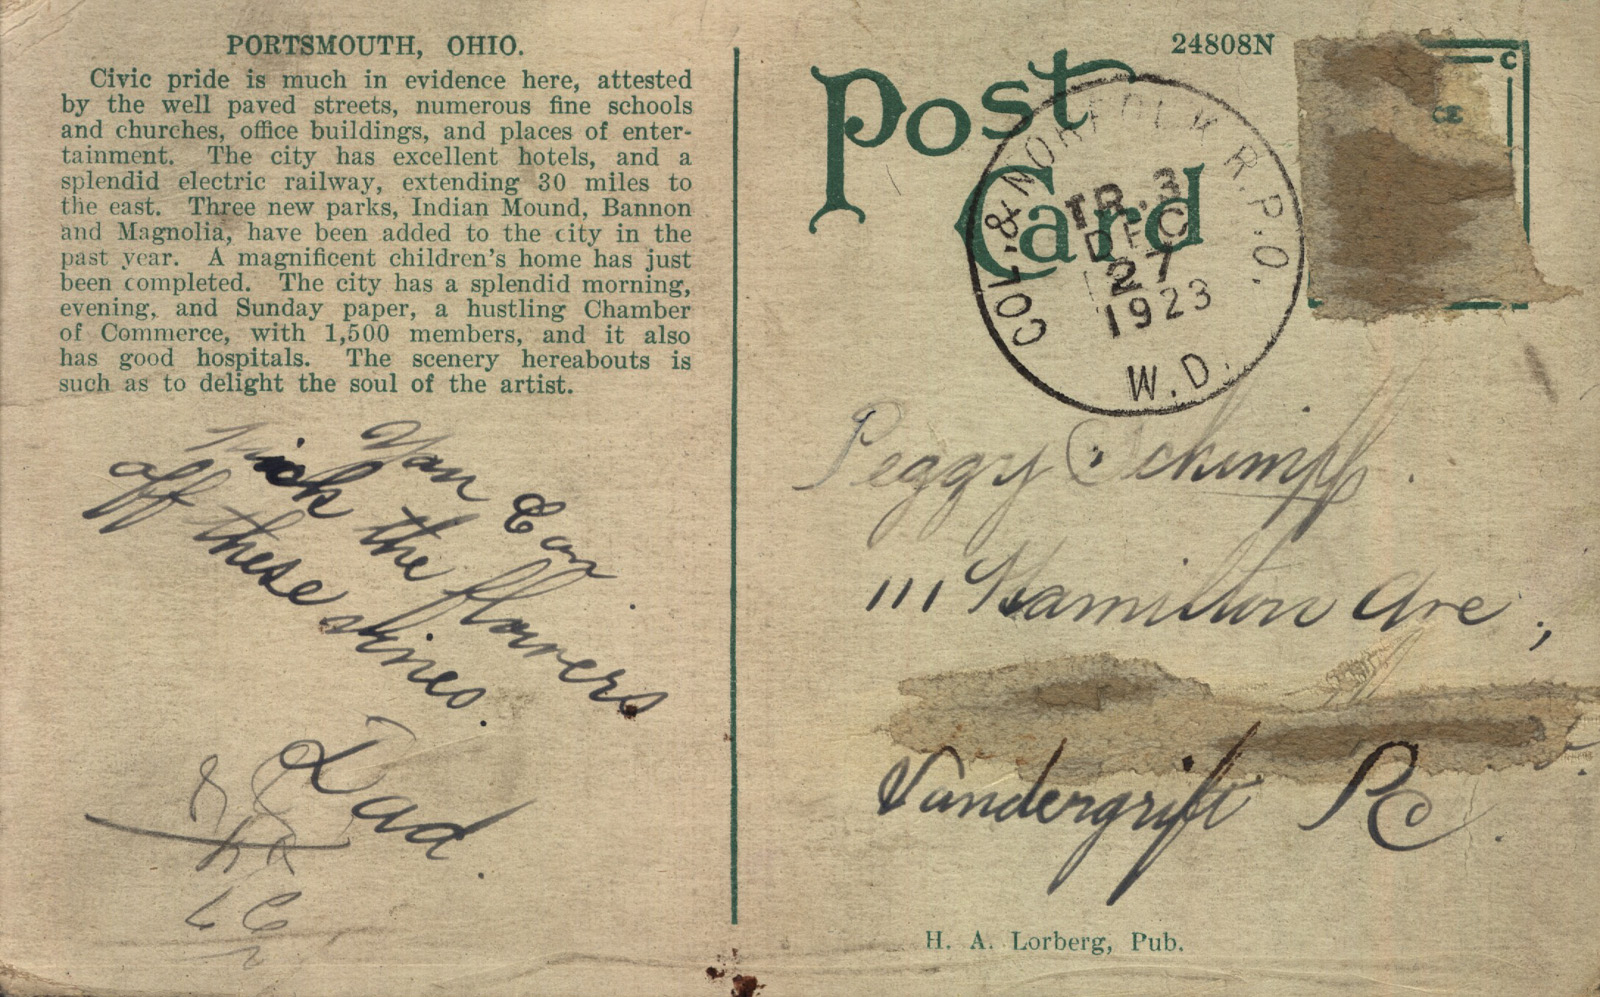 PORTSMOUTH, OHIO.
Civic pride is much in evidence here, attested
by the well paved streets, numerous fine schools
and churches, office buildings, and places of enter-
tainment. The city has excellent hotels, and a
splendid electric railway, extending 30 miles to
the east. Three new parks, Indian Mound, Bannon
and Magnolia, have been added to the city in the
past year. A magnificent children's home has just
been completed. The city has a splendid morning,
evening, and Sunday paper, a hustling Chamber
of Commerce, with 1,500 members, and it also
has good hospitals. The scenery hereabouts is
such as to delight the soul of the artist.
You Can
the flowers
off these vines.
Dad.
24808N
Post
Card
COL. & NORFOLK R.P.O.
TR. 3
DEC
27
1923
W.D.
Peggy Schimpf.
111 Hamilton Ave,
Vandergrift Pa.
H. A. Lorberg, Pub.